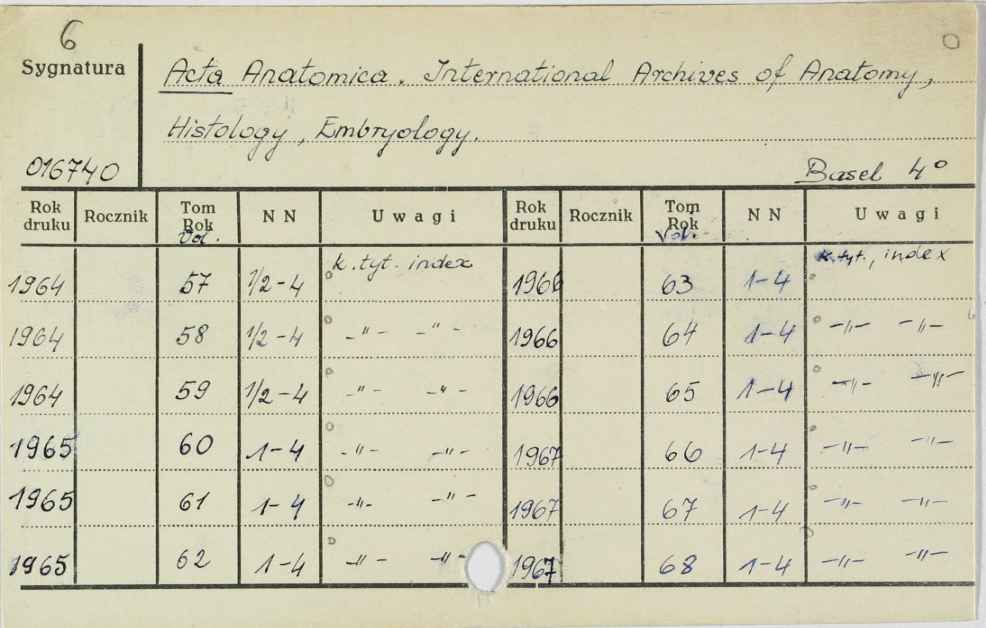 6
Sygnatura
Acta Anatomica. International Archives of Anatomy,
Histology, Embryology.
016740
Basel 4°
Rok druku Rocznik Tom Rok Vol. NN Uwagi Rok druku Rocznik Tom Rok Vol. NN Uwagi
1964 57 1/2-4 k. tyt. index 1966 63 1-4 k. tyt., index
1964 58 1/2-4 -"- -"- 1966 64 1-4 -"- -"-
1964 59 1/2-4 -"- -"- 1966 65 1-4 -"- -"-
1965 60 1-4 -"- -"- 1967 66 1-4 -"- -"-
1965 61 1-4 -"- -"- 1967 67 1-4 -"- -"-
1965 62 1-4 -"- -"- 1967 68 1-4 -"- -"-